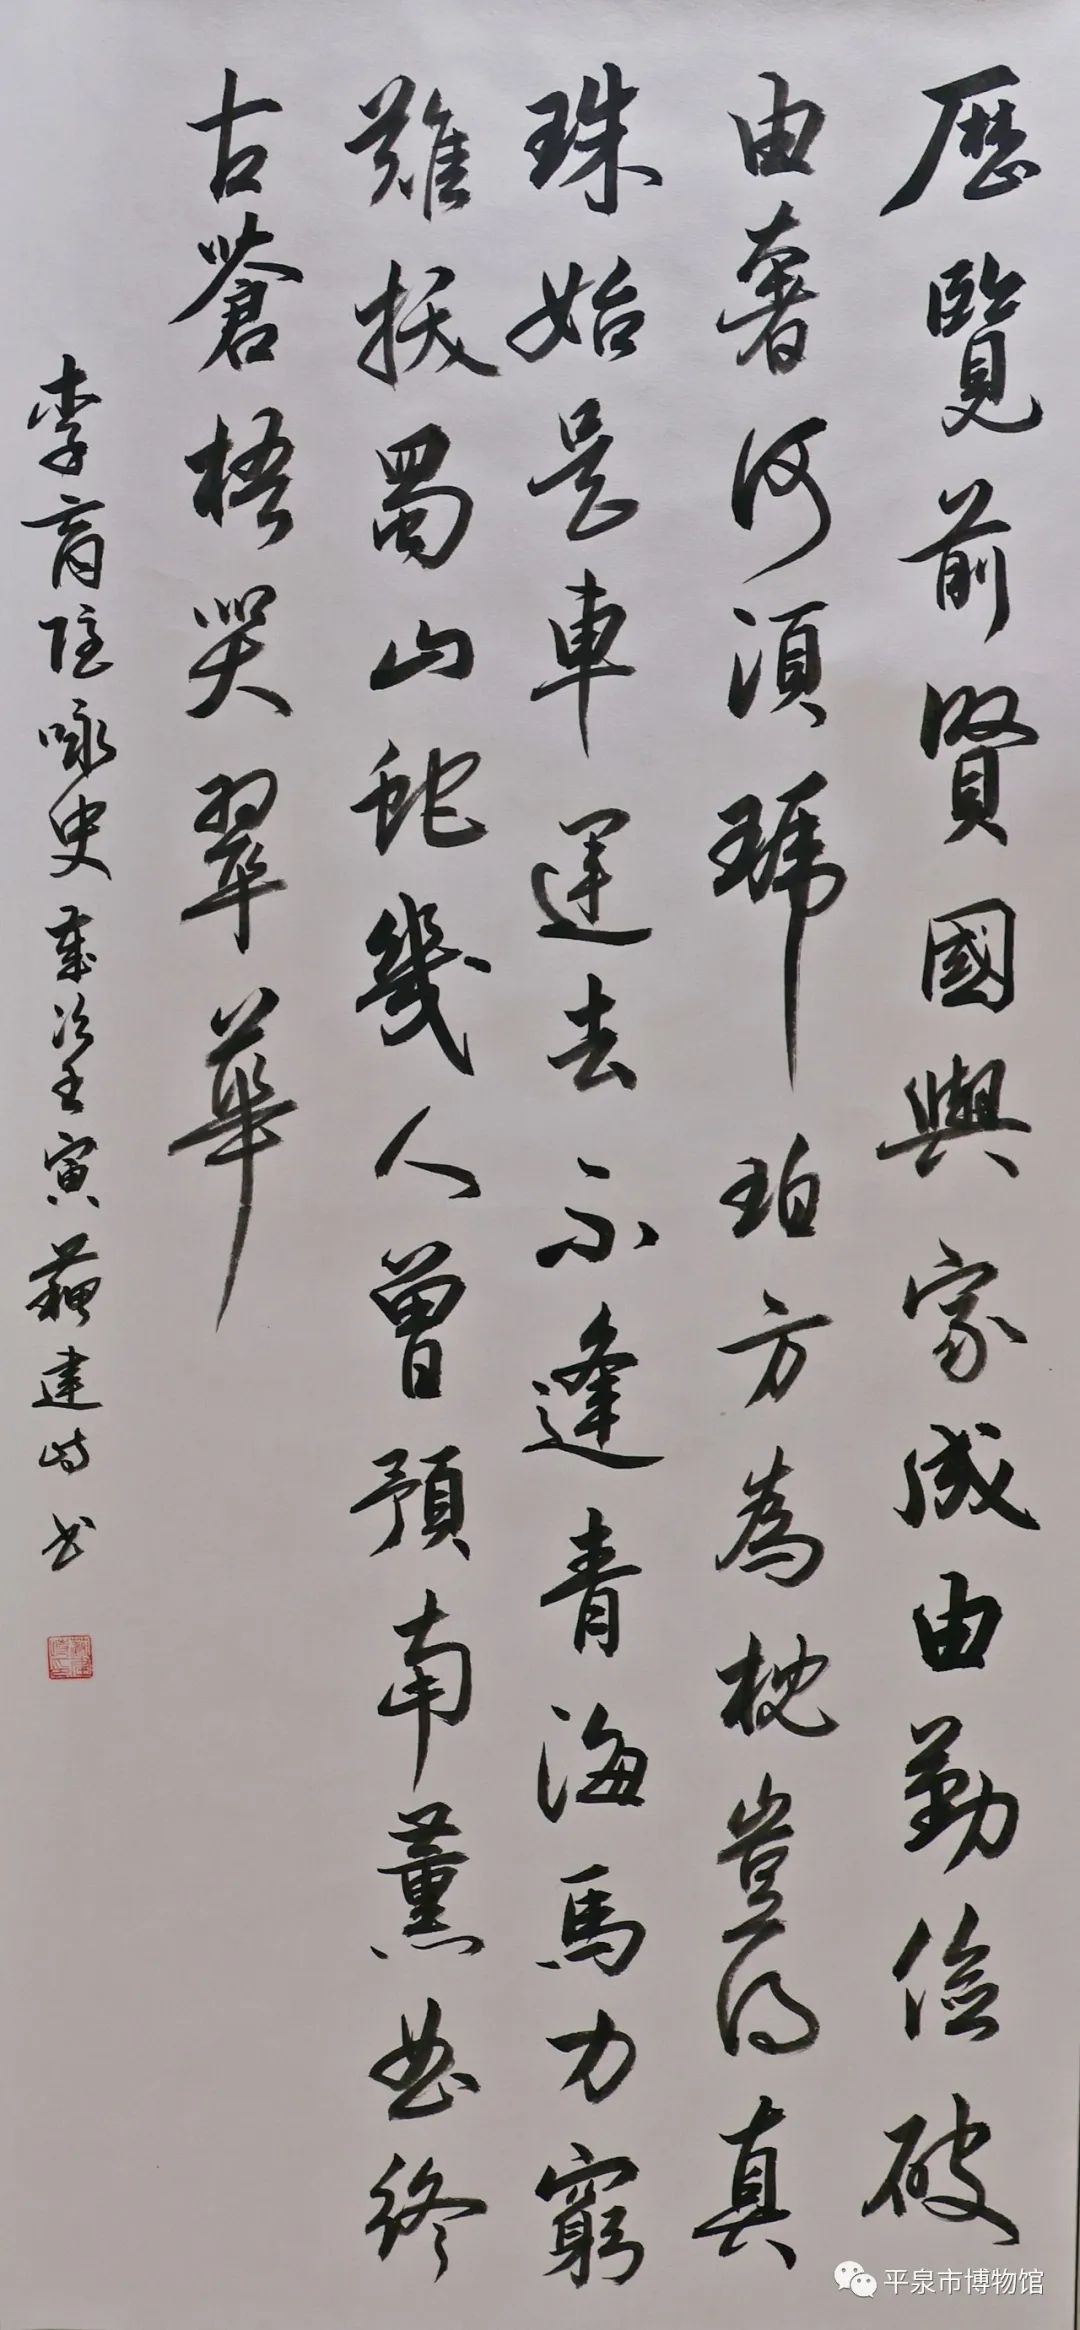 歷覽前賢國與家成由勤儉破
由奢何須琥珀方為枕豈得真
珠始是車運去不逢青海馬力窮
難拔蜀山蛇幾人曾預南薰曲終
古蒼梧哭翠華
李商隱咏史歲次壬寅蘇建峙书
平泉市博物馆